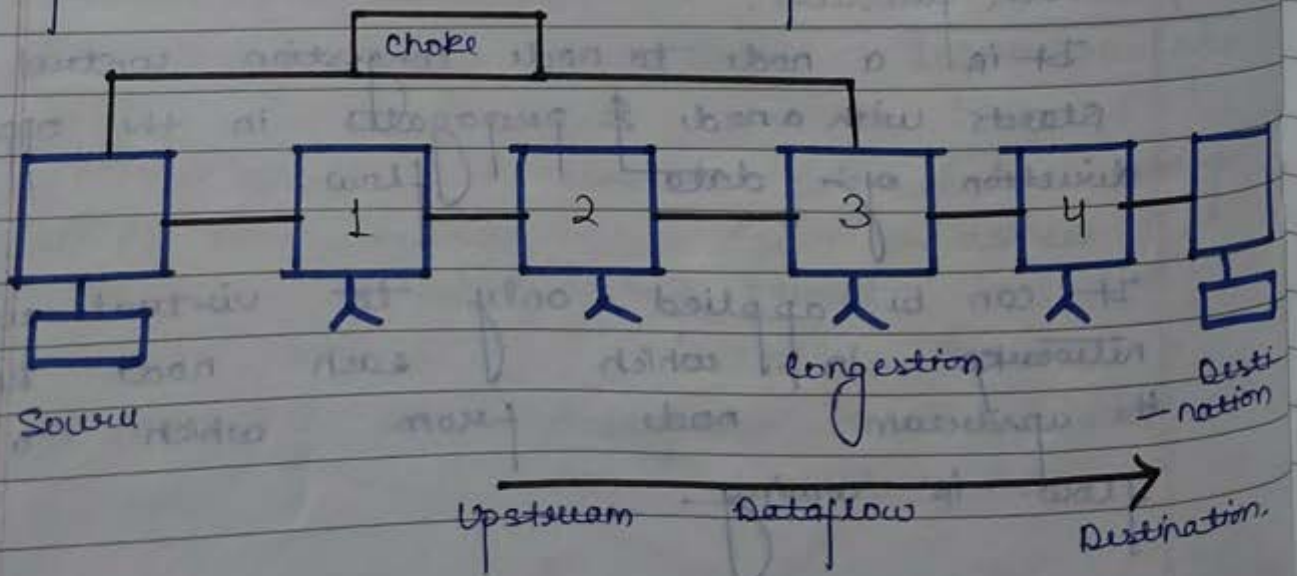 Choke
1 2 3 4
Congestion
Source
Desti
- nation
Upstream Dataflow Destination.